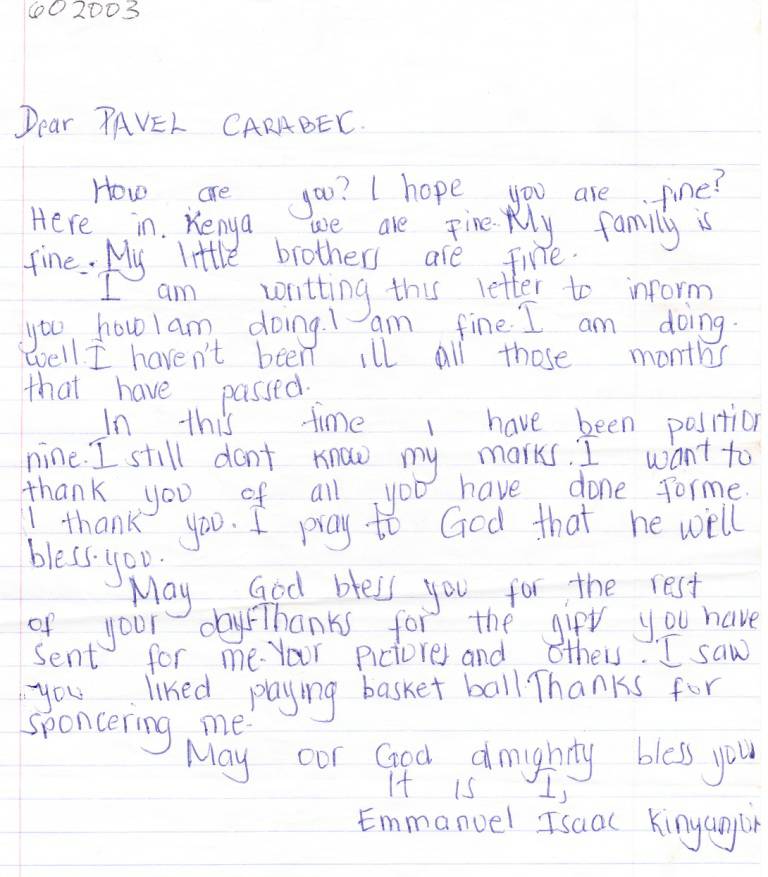 602003
Dear PAVEL CARABEC.
How are you? I hope you are fine?
Here in. Kenya we are fine. My family is
fine. My little brothers are fine.
I am writting this letter to inform
you how I am doing. I am fine. I am doing.
well. I haven't been ill all those months
that have passed.
In this time I have been position
nine. I still dont know my marks. I want to
thank you of all you have done forme.
I thank you. I pray to God that he will
bless. you.
May God bless you for the rest
of your days Thanks for the gifts you have
sent for me. Your pictures and others. I saw
you liked playing basket ball. Thanks for
sponcering me.
May our God almighity bless you
It is I,
Emmanuel Isaac Kinyanjui